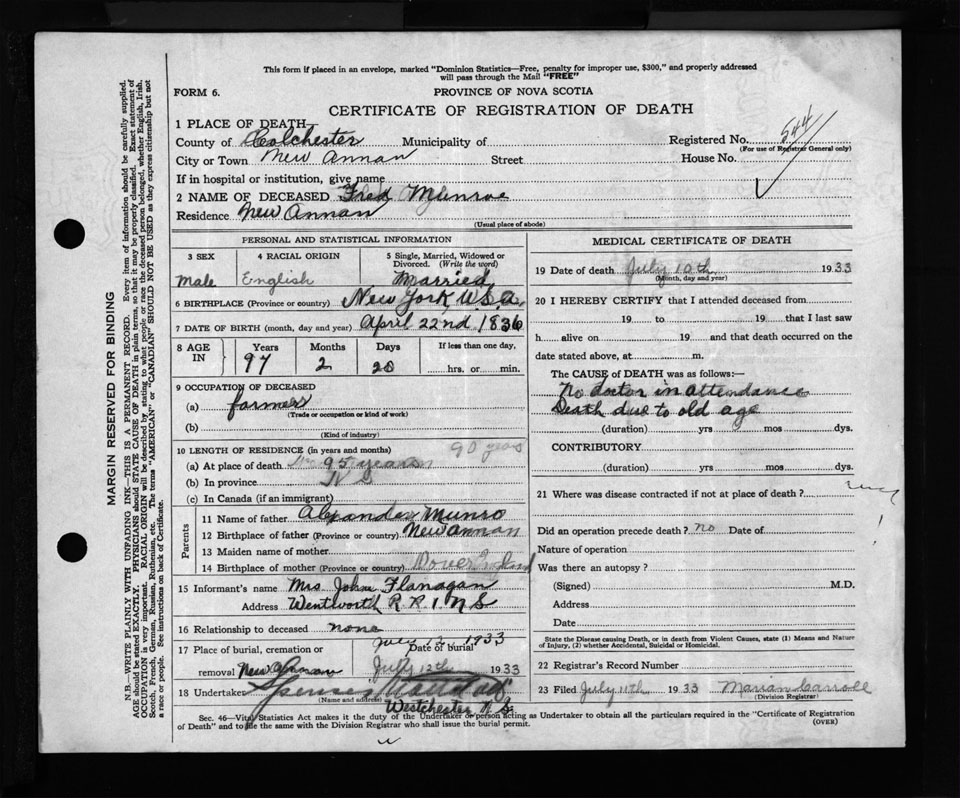 This form if placed in an envelope, marked "Dominion Statistics—Free, penalty for improper use, $300," and properly addressed
will pass through the Mail "FREE"
FORM 6.
PROVINCE OF NOVA SCOTIA
CERTIFICATE OF REGISTRATION OF DEATH
1 PLACE OF DEATH
County of Colchester Municipality of Registered No. 544
(For use of Registrar General only)
City or Town New Annan Street House No.
If in hospital or institution, give name
2 NAME OF DECEASED Fred Munroe
Residence New Annan
(Usual place of abode)
PERSONAL AND STATISTICAL INFORMATION
3 SEX 4 RACIAL ORIGIN 5 Single, Married, Widowed or
Divorced. (Write the word)
Male English Married
6 BIRTHPLACE (Province or country) New York, USA.
7 DATE OF BIRTH (month, day and year) April 22nd 1836
8 AGE IN Years Months Days If less than one day,
97 2 20 hrs. or min.
9 OCCUPATION OF DECEASED
(a) farmer
(Trade or occupation or kind of work)
(b)
(Kind of industry)
10 LENGTH OF RESIDENCE (in years and months) 90 years
(a) At place of death 95 years
(b) In province NS
(c) In Canada (if an immigrant)
Parents
11 Name of father Alexander Munro
12 Birthplace of father (Province or country) New Annan
13 Maiden name of mother
14 Birthplace of mother (Province or country) Dover England
15 Informant's name Mrs. John Flanagan
Address Wentworth R R 1 N S
16 Relationship to deceased none
July 12 1933
17 Place of burial, cremation or Date of burial
removal New Annan July 12th 1933
18 Undertaker Spencer
(Name and address)
Westchester N.S.
MEDICAL CERTIFICATE OF DEATH
19 Date of death July 10th 1933
(Month, day and year)
20 I HEREBY CERTIFY that I attended deceased from
19 to 19 that I last saw
h alive on 19 and that death occurred on the
date stated above, at m.
The CAUSE of DEATH was as follows:—
No doctor in attendance
Death due to old age
(duration) yrs mos dys.
CONTRIBUTORY
(duration) yrs mos dys.
21 Where was disease contracted if not at place of death?
Did an operation precede death? no Date of
Nature of operation
Was there an autopsy?
(Signed) M.D.
Address
Date
State the Disease causing Death, or in death from Violent Causes, state (1) Means and Nature
of Injury, (2) whether Accidental, Suicidal or Homicidal.
22 Registrar's Record Number
23 Filed July 11th 1933 Marian Carroll
(Division Registrar)
Sec. 46—Vital Statistics Act makes it the duty of the Undertaker or person acting as Undertaker to obtain all the particulars required in the "Certificate of Registration
of Death" and to file the same with the Division Registrar who shall issue the burial permit.
(OVER)
MARGIN RESERVED FOR BINDING
N.B.—WRITE PLAINLY WITH UNFADING INK—THIS IS A PERMANENT RECORD. Every item of information should be carefully supplied.
AGE should be stated EXACTLY. PHYSICIANS should STATE CAUSE OF DEATH in plain terms, so that it may be properly classified. Exact statement of
OCCUPATION is very important. RACIAL ORIGIN will be described by stating to what people or race the deceased person belonged, whether English, Irish,
Scotch, French, German, Russian, Ruthenian, etc. The terms "AMERICAN" or "CANADIAN" SHOULD NOT BE USED as they express citizenship but not
a race or people. See instructions on back of Certificate.